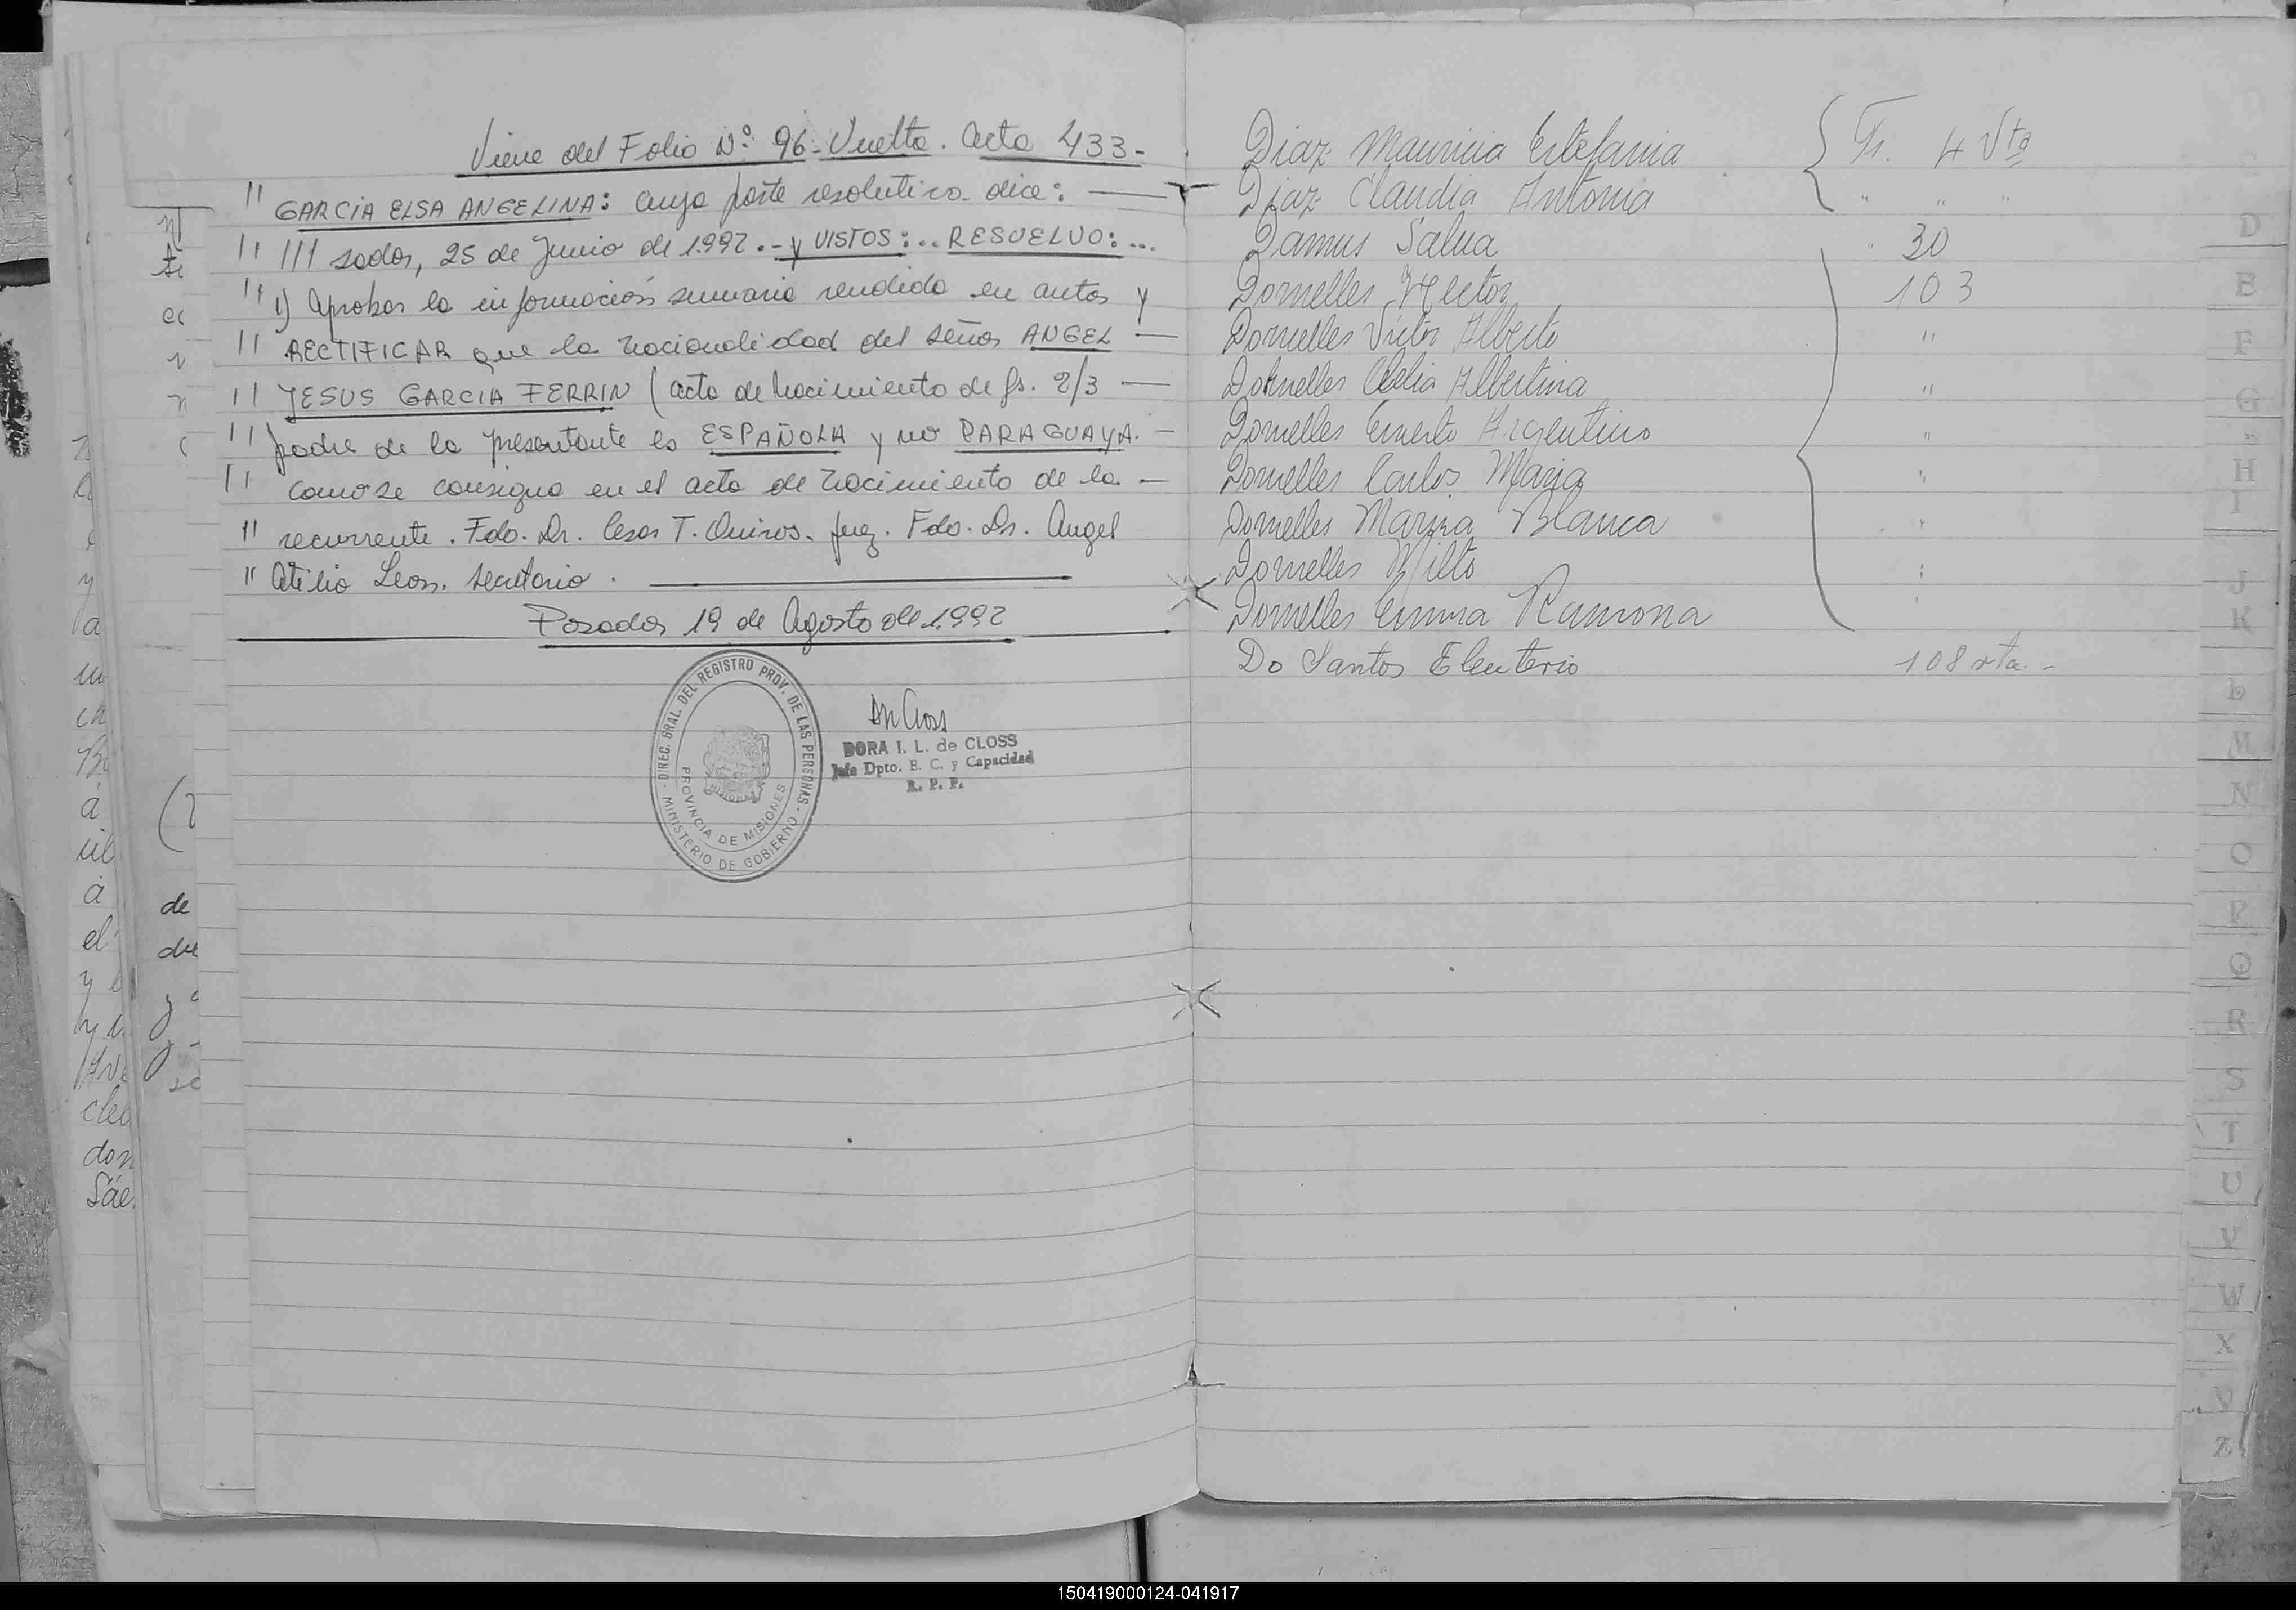 Viene del Folio Nº 96- Vuelta. Acta 433-
" GARCIA ELSA ANGELINA: cuya parte resolutiva dice: —
" /// sadas, 25 de Junio de 1.992.- y VISTOS:.. RESUELVO:...
" 1) Aprobar la información sumaria rendida en autos y
" RECTIFICAR que la nacionalidad del señor ANGEL —
" JESUS GARCIA FERRIN (acta de nacimiento de fs. 2/3 —
" padre de la presentante es ESPAÑOLA y no PARAGUAYA. —
" como se consigna en el acta de nacimiento de la —
" recurrente. Fdo. Dr. Cesar T. Quiros. Juez. Fdo. Dr. Angel
" Atilio Leon. Secretario. —
Posadas 19 de Agosto de 1.992
DIREC. GRAL. DEL REGISTRO PROV. DE LAS PERSONAS.
MINISTERIO DE GOBIERNO
PROVINCIA DE MISIONES
DORA I. L. de CLOSS
Jefe Dpto. E. C. y Capacidad
R. P. P.
Diaz Mauricia Estefania Fs. 4 Vta
Diaz Claudia Antonia " " "
Damus Salua " 30
Dornelles Hector 103
Dornelles Victor Alberto "
Dornelles Clelia Albertina "
Dornelles Ernesto Argentino "
Dornelles Carlos Maria "
Dornelles Marina Blanca "
Dornelles Milto :
Dornelles Emma Ramona :
Do Santos Eleuterio 108 vta. -
D
E
F
G
H
I
J
K
L
M
N
O
P
Q
R
S
T
U
V
W
X
Y
Z
150419000124-041917